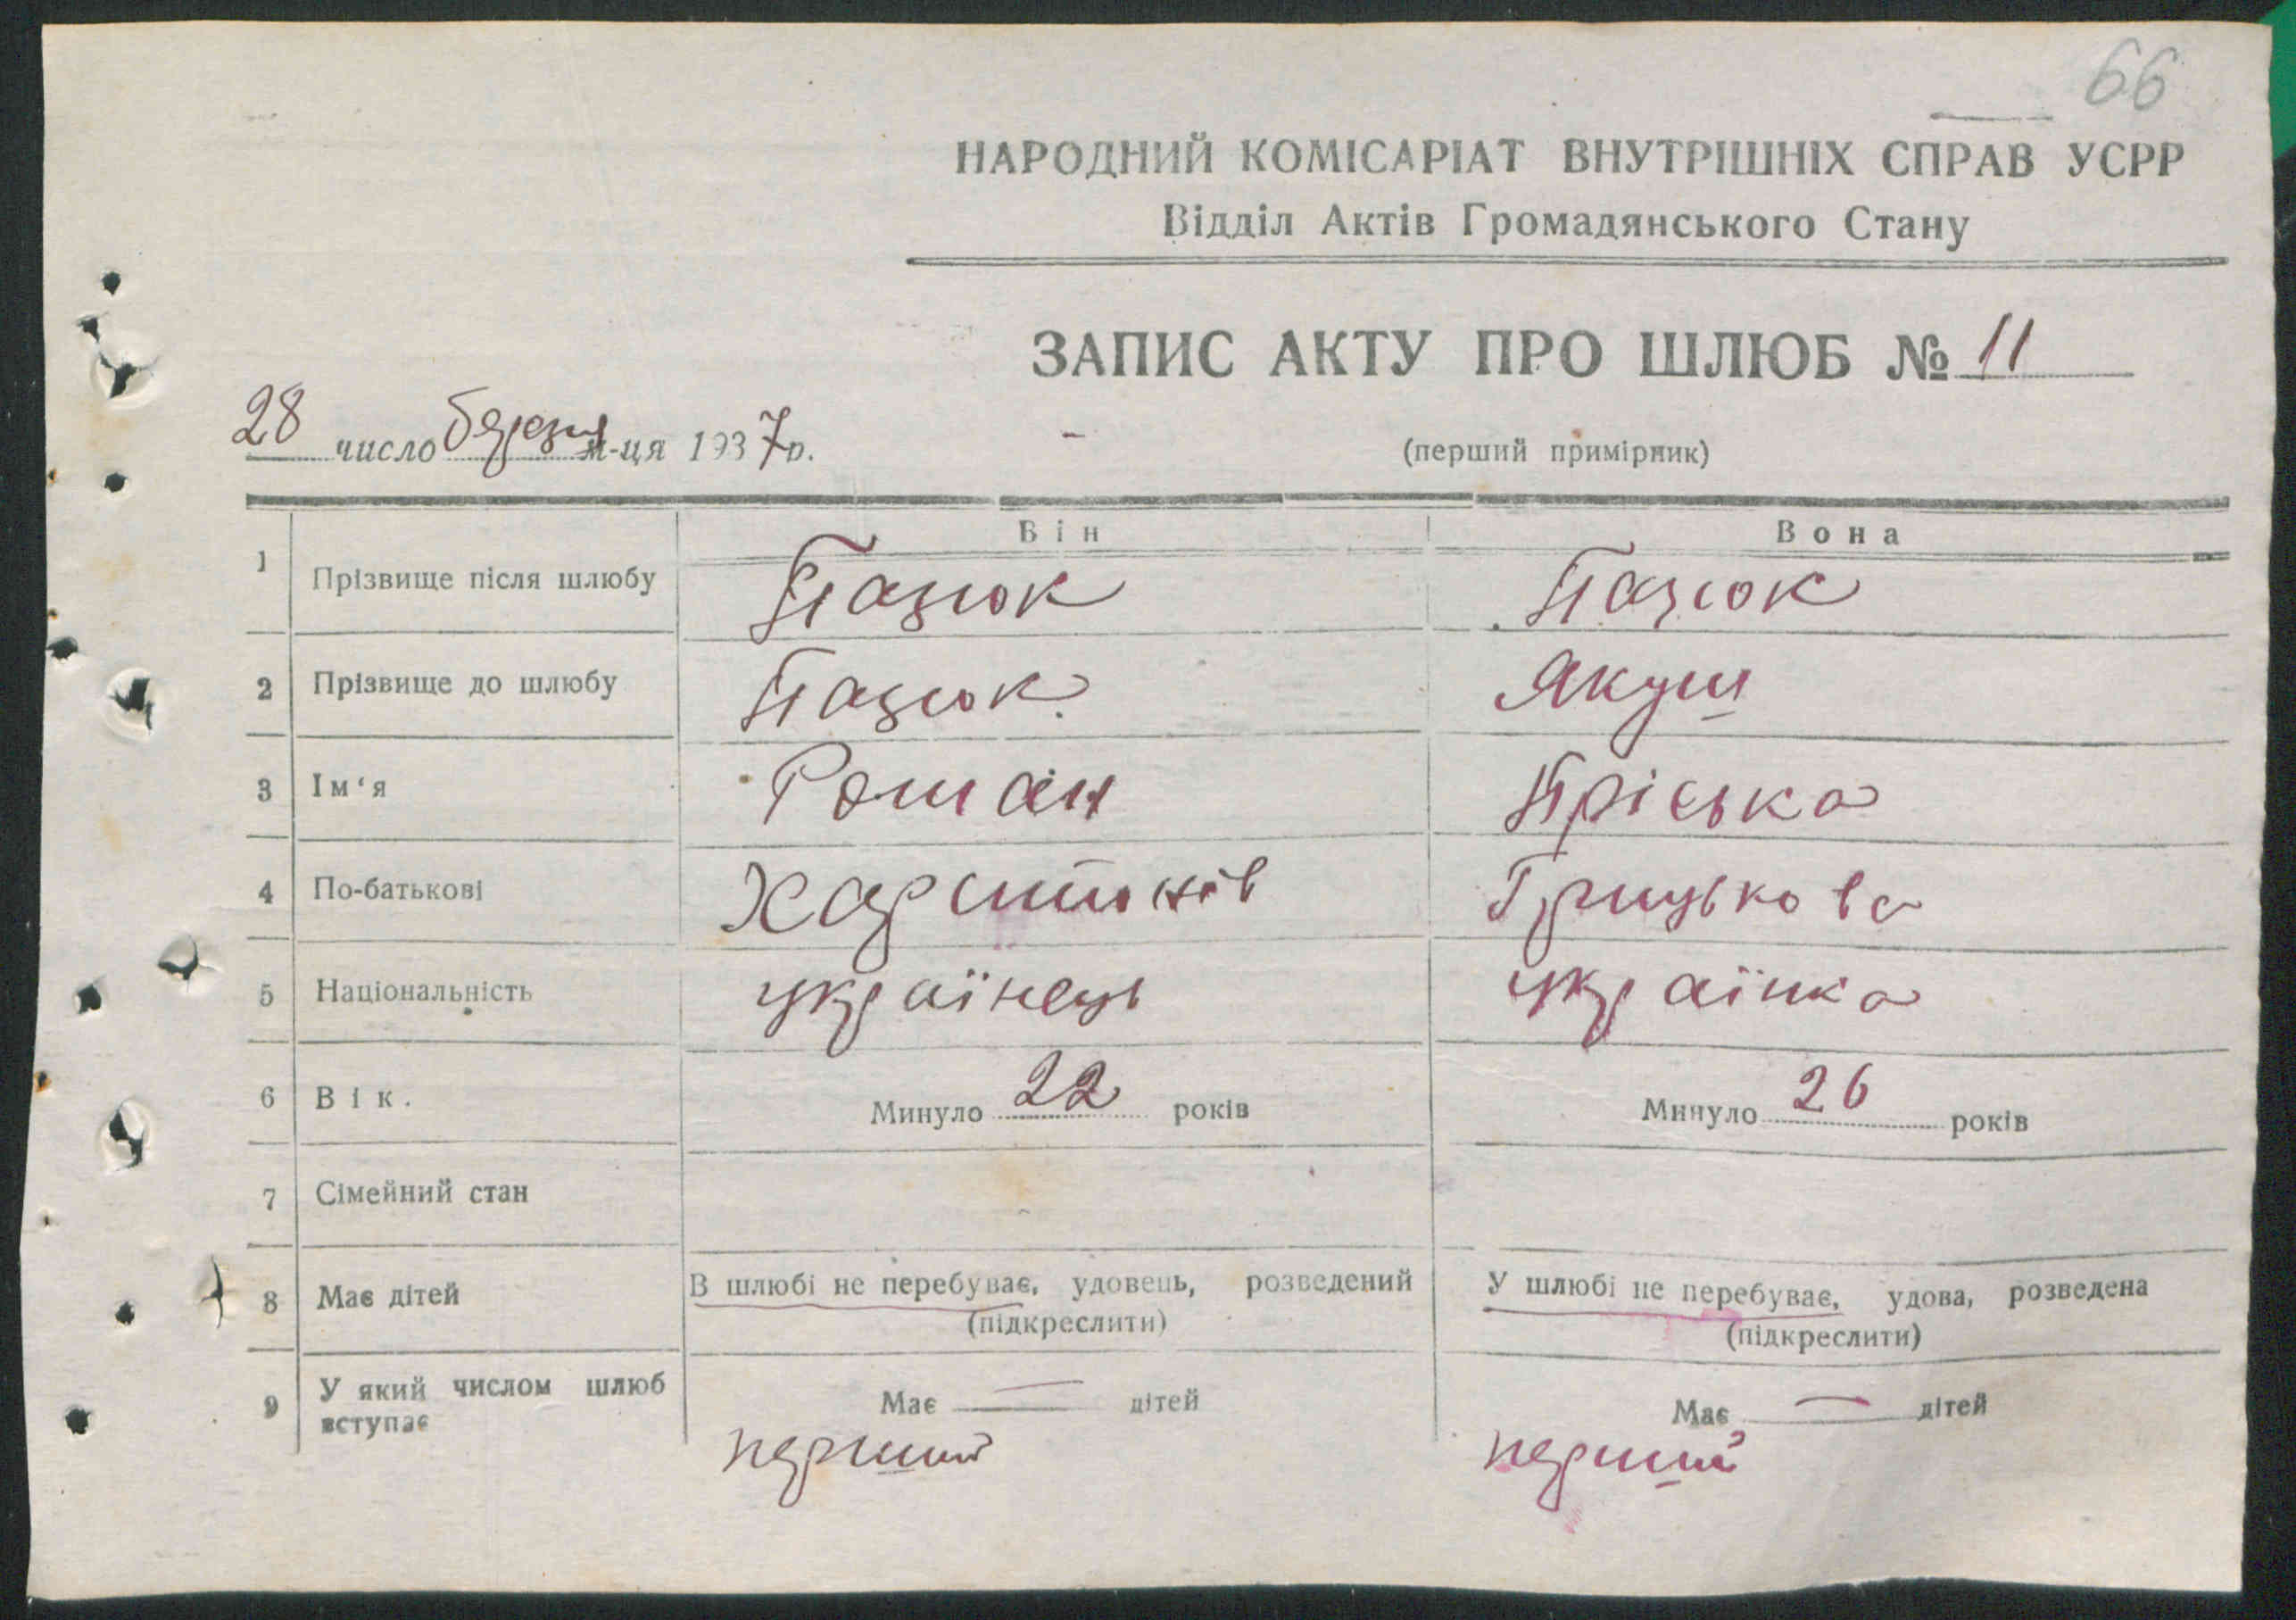 66
НАРОДНИЙ КОМІСАРІАТ ВНУТРІШНІХ СПРАВ УСРР
Відділ Актів Громадянського Стану
ЗАПИС АКТУ ПРО ШЛЮБ № 11
28 число березня м-ця 1937р.
(перший примірник)
Він Вона
1 Прізвище після шлюбу Пазюк Пазюк
2 Прізвище до шлюбу Пазюк Якуш
3 Ім‘я Роман Пріська
4 По-батькові Харитонів Грицькова
5 Національність українець українка
6 Вік. Минуло 22 років Минуло 26 років
7 Сімейний стан
8 Має дітей В шлюбі не перебуває, удовець, розведений У шлюбі не перебуває, удова, розведена
(підкреслити) (підкреслити)
9 У який числом шлюб вступає Має — дітей Має — дітей
перший перший